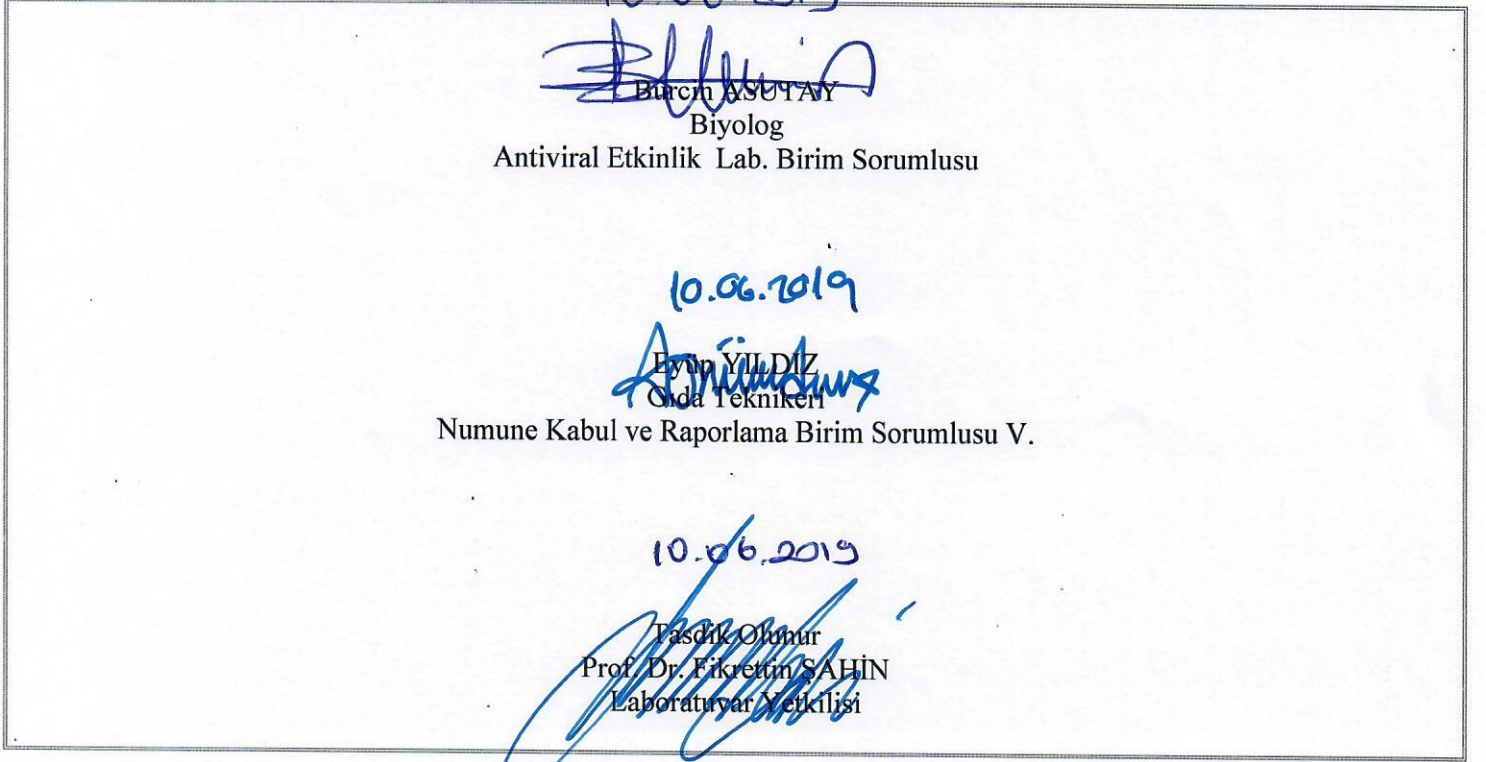 10.06.2019
Burcin ASUTAY
Biyolog
Antiviral Etkinlik Lab. Birim Sorumlusu
10.06.2019
Eyüp YILDIZ
Gıda Teknikeri
Numune Kabul ve Raporlama Birim Sorumlusu V.
10.06.2019
Tasdik Olunur
Prof. Dr. Fikrettin ŞAHİN
Laboratuvar Yetkilisi